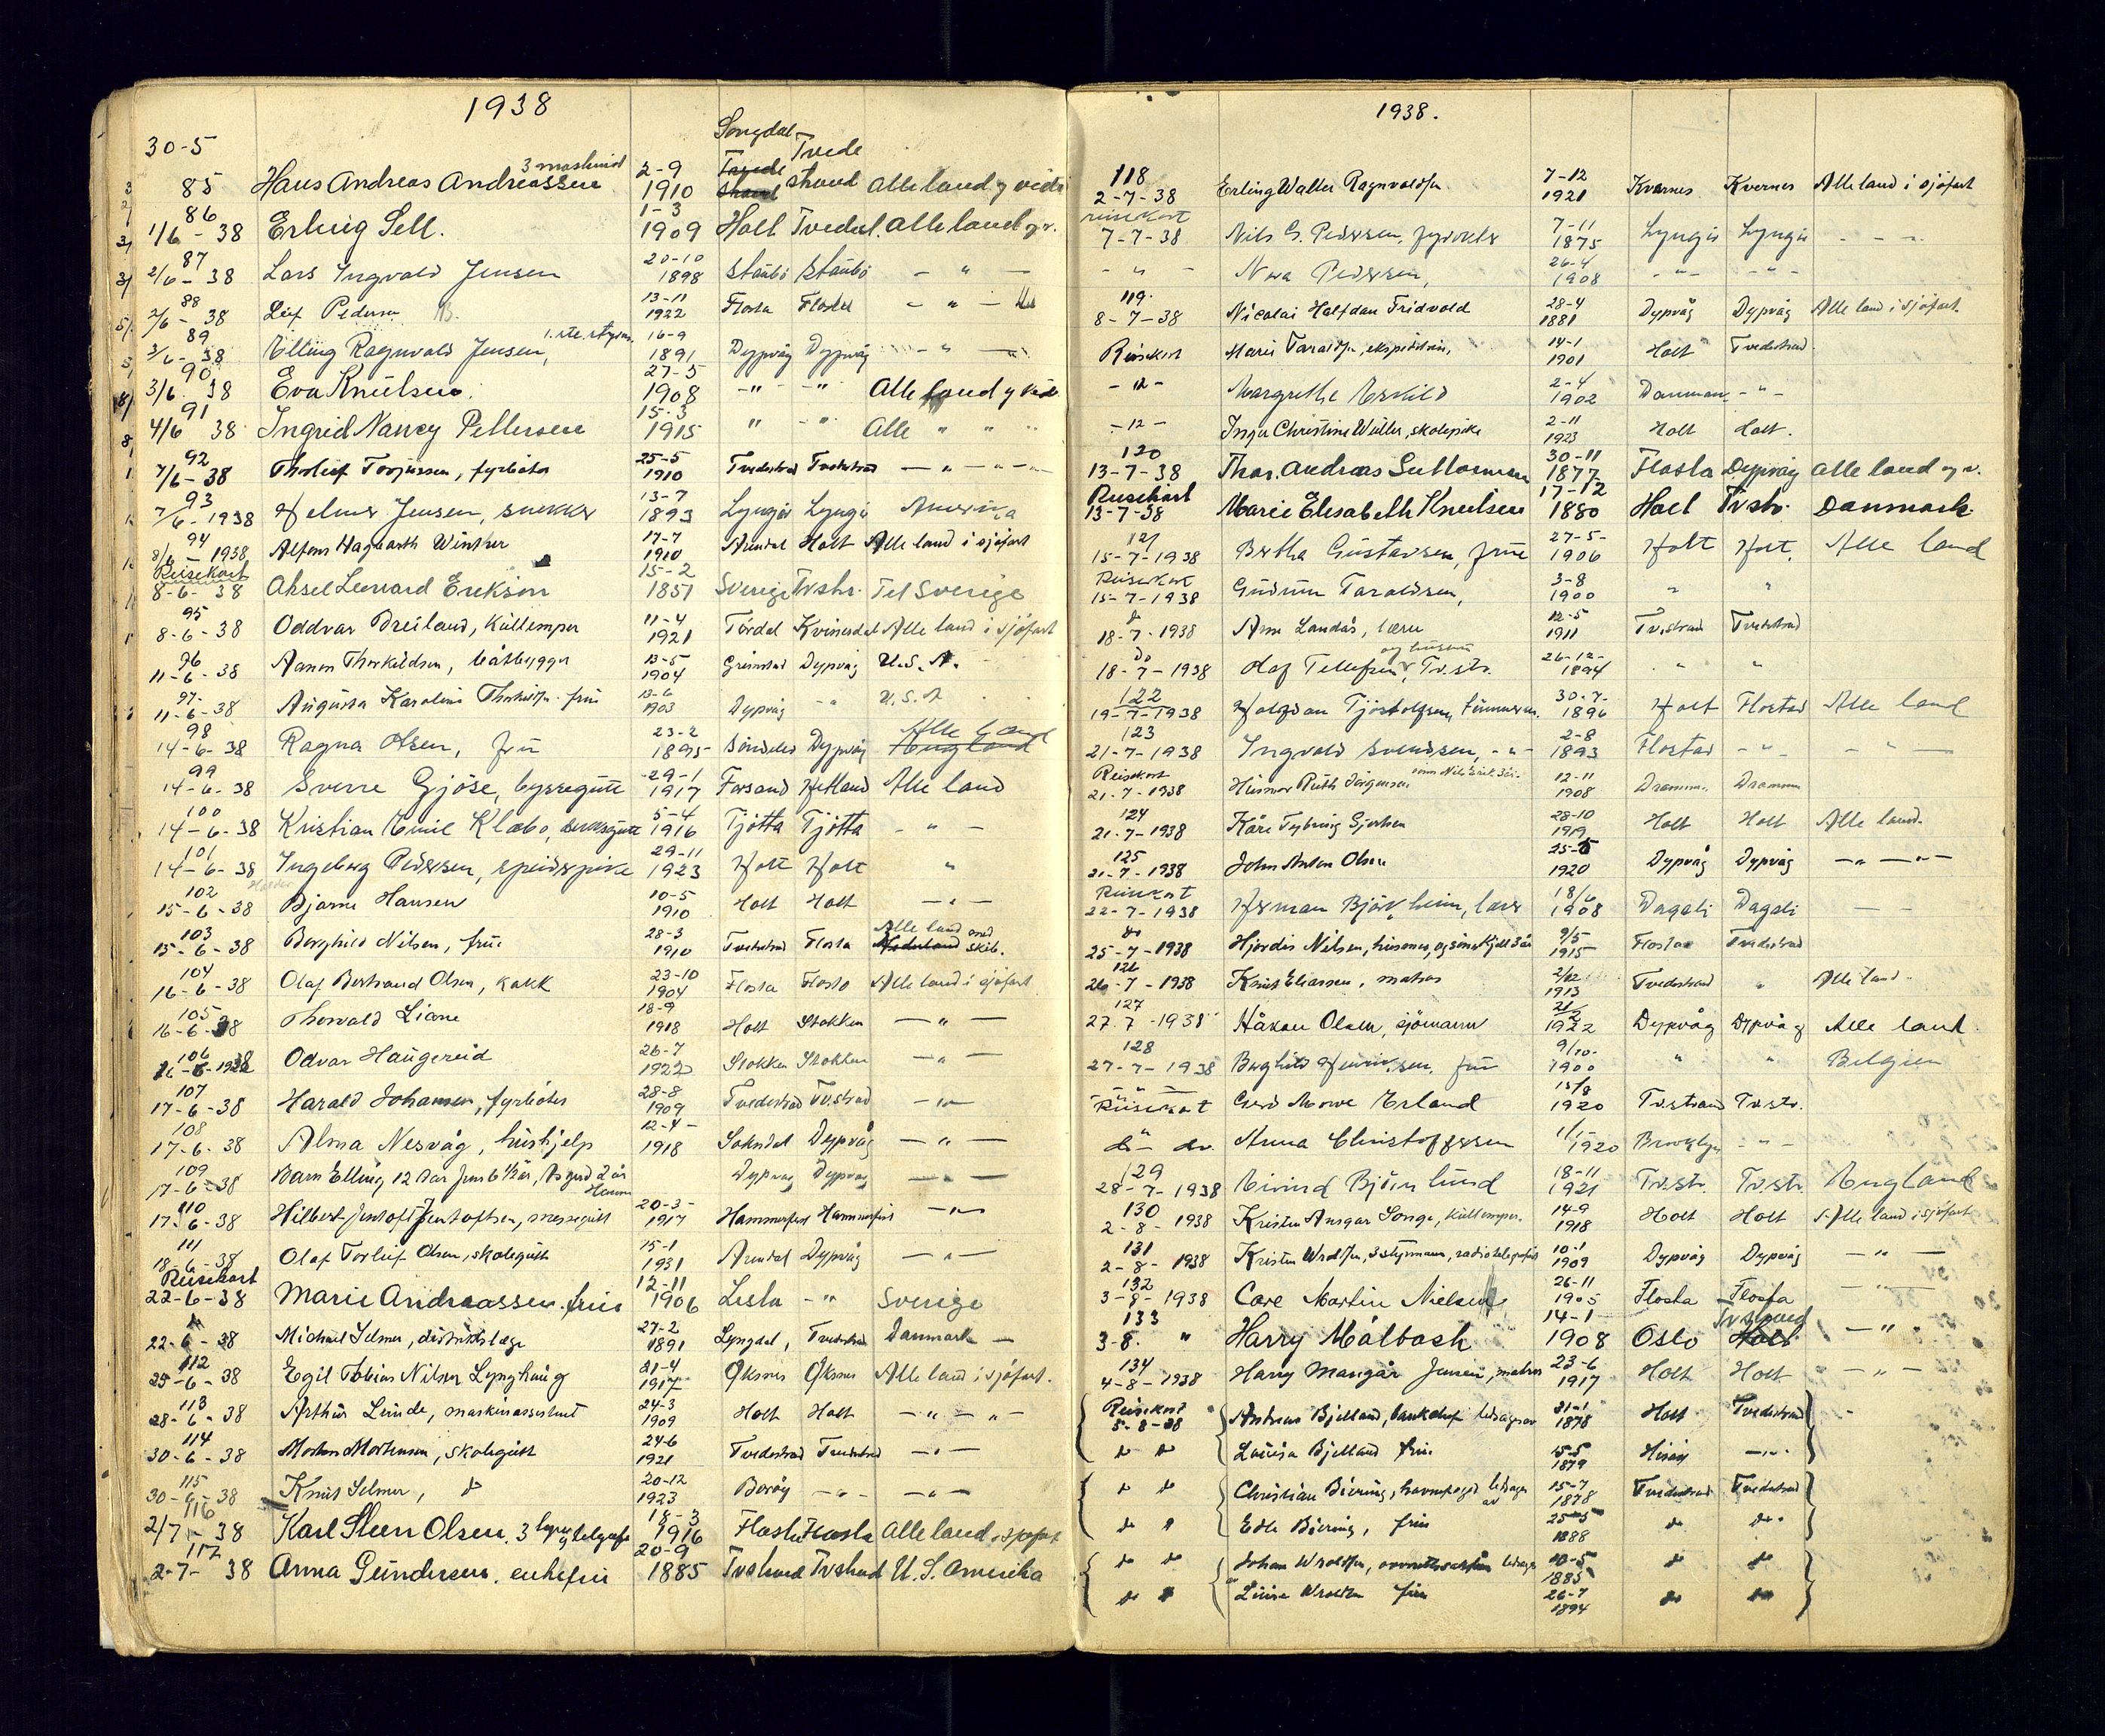 1938
30-5
85 Hans Andreas Andreassen 3 maskinist 2-9 1910 Songdal Tvedestrand Alle land
86 1/6-38 Erling Sell. 1-3 1909 Holt Tvedest. Alle land
87 2/6-38 Lars Ingvald Jensen 20-10 1898 Staubö Staubö - " -
88 2/6-38 Leif Pedersen 13-11 1922 Flosta Flosta - " -
89 3/6-38 Elling Ragnvald Jensen, 1.ste styrm. 16-9 1891 Dypvåg Dypvåg - " -
90 3/6 38 Eva Knutsen. 27-5 1908 -"- -"- Alle land
91 4/6 38 Ingrid Nancy Pettersen 15-3 1915 " - " Alle " "
92 7/6-38 Thorleif Torjussen, fyrböter 25-5 1910 Tvedestrand Tvedestrand - " - " -
93 7/6-1938 Helmer Jensen, snekker 13-7 1893 Lyngör Lyngö Amerika
94 8/6-1938 Alfons Hagbarth Winther 17-7 1910 Arendal Holt Alle land i sjöfart
Reisekort 8-6-38 Aksel Leonard Erikson 15-2 1851 Sverige Tvstr. Til Sverige
95 8-6-38 Oddvar Dreiland, Kullemper 11-4 1921 Tördal Kvinesdal Alle land i sjöfart
96 11-6-38 Aanon Thorkildsen, båtbygger 13-5 1904 Grimstad Dypvåg U.S.A.
97 11-6-38 Augusta Karoline Thorkilds. frue 13-6 1903 Dypvåg - " U.S.A
98 14-6-38 Ragna Olsen, fru 23-2 1895 Söndeled Dypvåg Alle Land England
99 14-6-38 Sverre Gjöse, byssegutt 29-1 1917 Forsand Hetland Alle land
100 14-6-38 Kristian Emil Klæbo, dekksgutt 5-4 1916 Tjötta Tjötta - " -
101 14-6-38 Ingeborg Pedersen, speiderpike 29-11 1923 Holt Holt "
102 15-6-38 Bjarne Hansen 10-5 1910 Holt Holt - " -
103 15-6-38 Borghild Nilsen, frue 28-3 1910 Tvedestrand Flosta Alle land med skib.
104 16-6-38 Olaf Bertrand Olsen, kokk 23-10 1904 Flosta Flosta Alle land i sjöfart
105 16-6-38 Thorvald Liane 18-9 1918 Holt Stokken - " -
106 16-6-1938 Odvar Haugereid 26-7 1922 Stokken Stokken - " -
107 17-6-38 Harald Johansen, fyrböter 28-8 1909 Tvedestrand Tv.strand - " -
108 17-6-38 Alma Nesvåg, hushjelp 12-4 1918 Sokndal Dypvåg - " -
109 17-6-38 Barn Elling 12 år Jens 6 1/2 år, Asgerd 2 år Dypvåg Dypvåg - " -
110 17-6-38 Hilbert Jentoft Jentoftsen, messegutt 20-3 1917 Hammerfest Hammerfest - " -
111 18-6-38 Olaf Torleif Olsen, skolegutt 15-1 1931 Arendal Dypvåg - " -
Reisekort 22-6-38 Marie Andreassen. frue 12-11 1906 Lista - " Sverige
22-6-38 Michael Selmer, distriktslæge 27-2 1891 Lyngdal, Tvedestrand Danmark -
112 25-6-38 Egil Tobias Nilsen Lynghaug 21-4 1917 Øksnes Øksnes Alle land i sjöfart.
113 28-6-38 Arthur Lunde, maskinassistent 24-3 1909 Holt Holt - " - " -
114 30-6-38 Morten Mortensen, skolegutt 24-6 1921 Tvedestrand Tvedestrand - " -
115 30-6-38 Knut Selmer, do 20-12 1923 Beröy - " - - " -
116 2/7-38 Karl Steen Olsen. 18-3 1916 Flosta Flosta Alle land i sjöfart
117 2-7-38 Anna Gundersen. enkefru 20-9 1885 Tvstrand Tvstrand U.S. Amerika
1938.
118 2-7-38 Erling Walter Ragnvalds. 7-12 1921 Kvernes Kvernes Alle land i sjöfart
reisekort 7-7-38 Nils G. Pedersen, fyrvokter 7-11 1875 Lyngör Lyngör - - -
- " - Nora Pedersen, 26-4 1908 - " - - " -
119. 8-7-38 Nicolai Halfdan Fridvold 28-4 1881 Dypvåg Dypvåg Alle land i sjöfart.
Reisekort Marie Taralds., ekspeditrise, 14-1 1901 Holt Tvedestrand
- " - Margrethe Eskild 2-4 1902 Danmark - " -
- " - Inger Christine Wüller, skolepike 2-11 1923 Holt Holt.
120 13-7-38 Thor. Andreas Guttormsen 30-11 1877 Flosta Dypvåg Alle land og v.
Reisekort 13-7-38 Marie Elisabeth Knutsen 17-12 1880 Holt Tvstr. Danmark
121 15-7-1938 Bertha Gustavsen, frue 27-5- 1906 Holt Holt. Alle land
Reisekort 15-7-1938 Gudrun Taraldsen, 3-8 1900 " "
do 18-7-1938 Arne Landås, lærer 12-5 1911 Tv.strand Tvedestrand
do 18-7-1938 Olaf Tellefsen og hustru, Tv.str. 26-12- 1894 " "
122 19-7-1938 Halfdan Tjöstolfsen, tömmerm. 30-7- 1896 Holt Flostad Alle land
123 21-7-1938 Ingvald Svendsen, - " - 2-8 1893 Flostad - " - - " -
Reisekort 21-7-1938 Husmor Ruth Jörgensen 12-11 1908 Drammen Drammen
124 21-7-1938 Kåre Tybring Gjertsen 28-10 1919 Holt Holt Alle land.
125 21-7-1938 John Anton Olsen 1920 Dypvåg Dypvåg - " - " -
Reisekort 22-7-1938 Herman Björkheim, lærer 18/6 1908 Dagali Dagali - -
do 25-7-1938 Hjördis Nilsen, husmor, og sönn Kjell 3 år 9/5 1915 Flosta Tvedestrand
126 26-7-1938 Knut Eliassen, matros 2/12 1913 Tvedestrand " Alle land-
127 27.7-1938 Håkon Olsen, sjömann 21/2 1922 Dypvåg Dypvåg Alle land.
128 27-7-1938 Borghild Henriksen. fru 9/10- 1900 " " Belgien
Reisekort Gerd Mowe Erland 15/8 1920 Tvstrand Tvstr.
do- do. Anna Christoffersen 1920 Brooklyn - " -
129 28-7-1938 Eivind Björnlund 18-11 1921 Tv.str. Tv.str. England
130 2-8-1938 Kristen Ansgar Songe, kullemper. 14-9 1918 Holt Holt Alle land i sjöfart
131 2-8-1938 Kristen Wrolds., 3 styrmann, radiotelegrafist 10-1 1909 Dypvåg Dypvåg - " -
132 3-8-1938 Care Martin Nielsen 26-11 1905 Flosta Flosta
133 3-8. " Harry Målbach 14-1 1908 Oslo Tv.strand Holt - " -
134 4-8-1938 Harry Mangår Jensen, matros 23-6 1917 Holt Holt - " -
Reisekort 5-8-38 Andreas Bjelland, banksjef ledsaget av 31-1 1878 Holt Tvedestrand
do do Lovisa Bjelland frue 15-5 1879 Hisöy - " -
do do Christian Biering, havnefoged ledsaget av 15-7 1878 Tvedestrand Tvedestrand
do do Edle Biering, frue 25-5 1888 do do
do do Johan Wrolds., ledsaget av 10-5 1885 do do
do do Luise Wroldsen frue 26-7 1894 do do